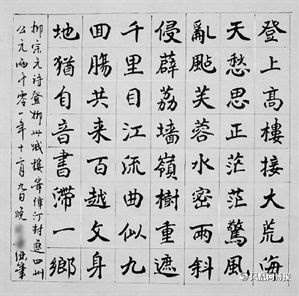 登上高樓接大荒海
天愁思正茫茫驚風
亂颭芙蓉水密雨斜
侵薜荔墻嶺樹重遮
千里目江流曲似九
回腸共来百越文身
地猶自音書滯一鄉
柳宗元诗登柳州城樓寄漳汀封連四州
公元兩千零一年十月九日晚